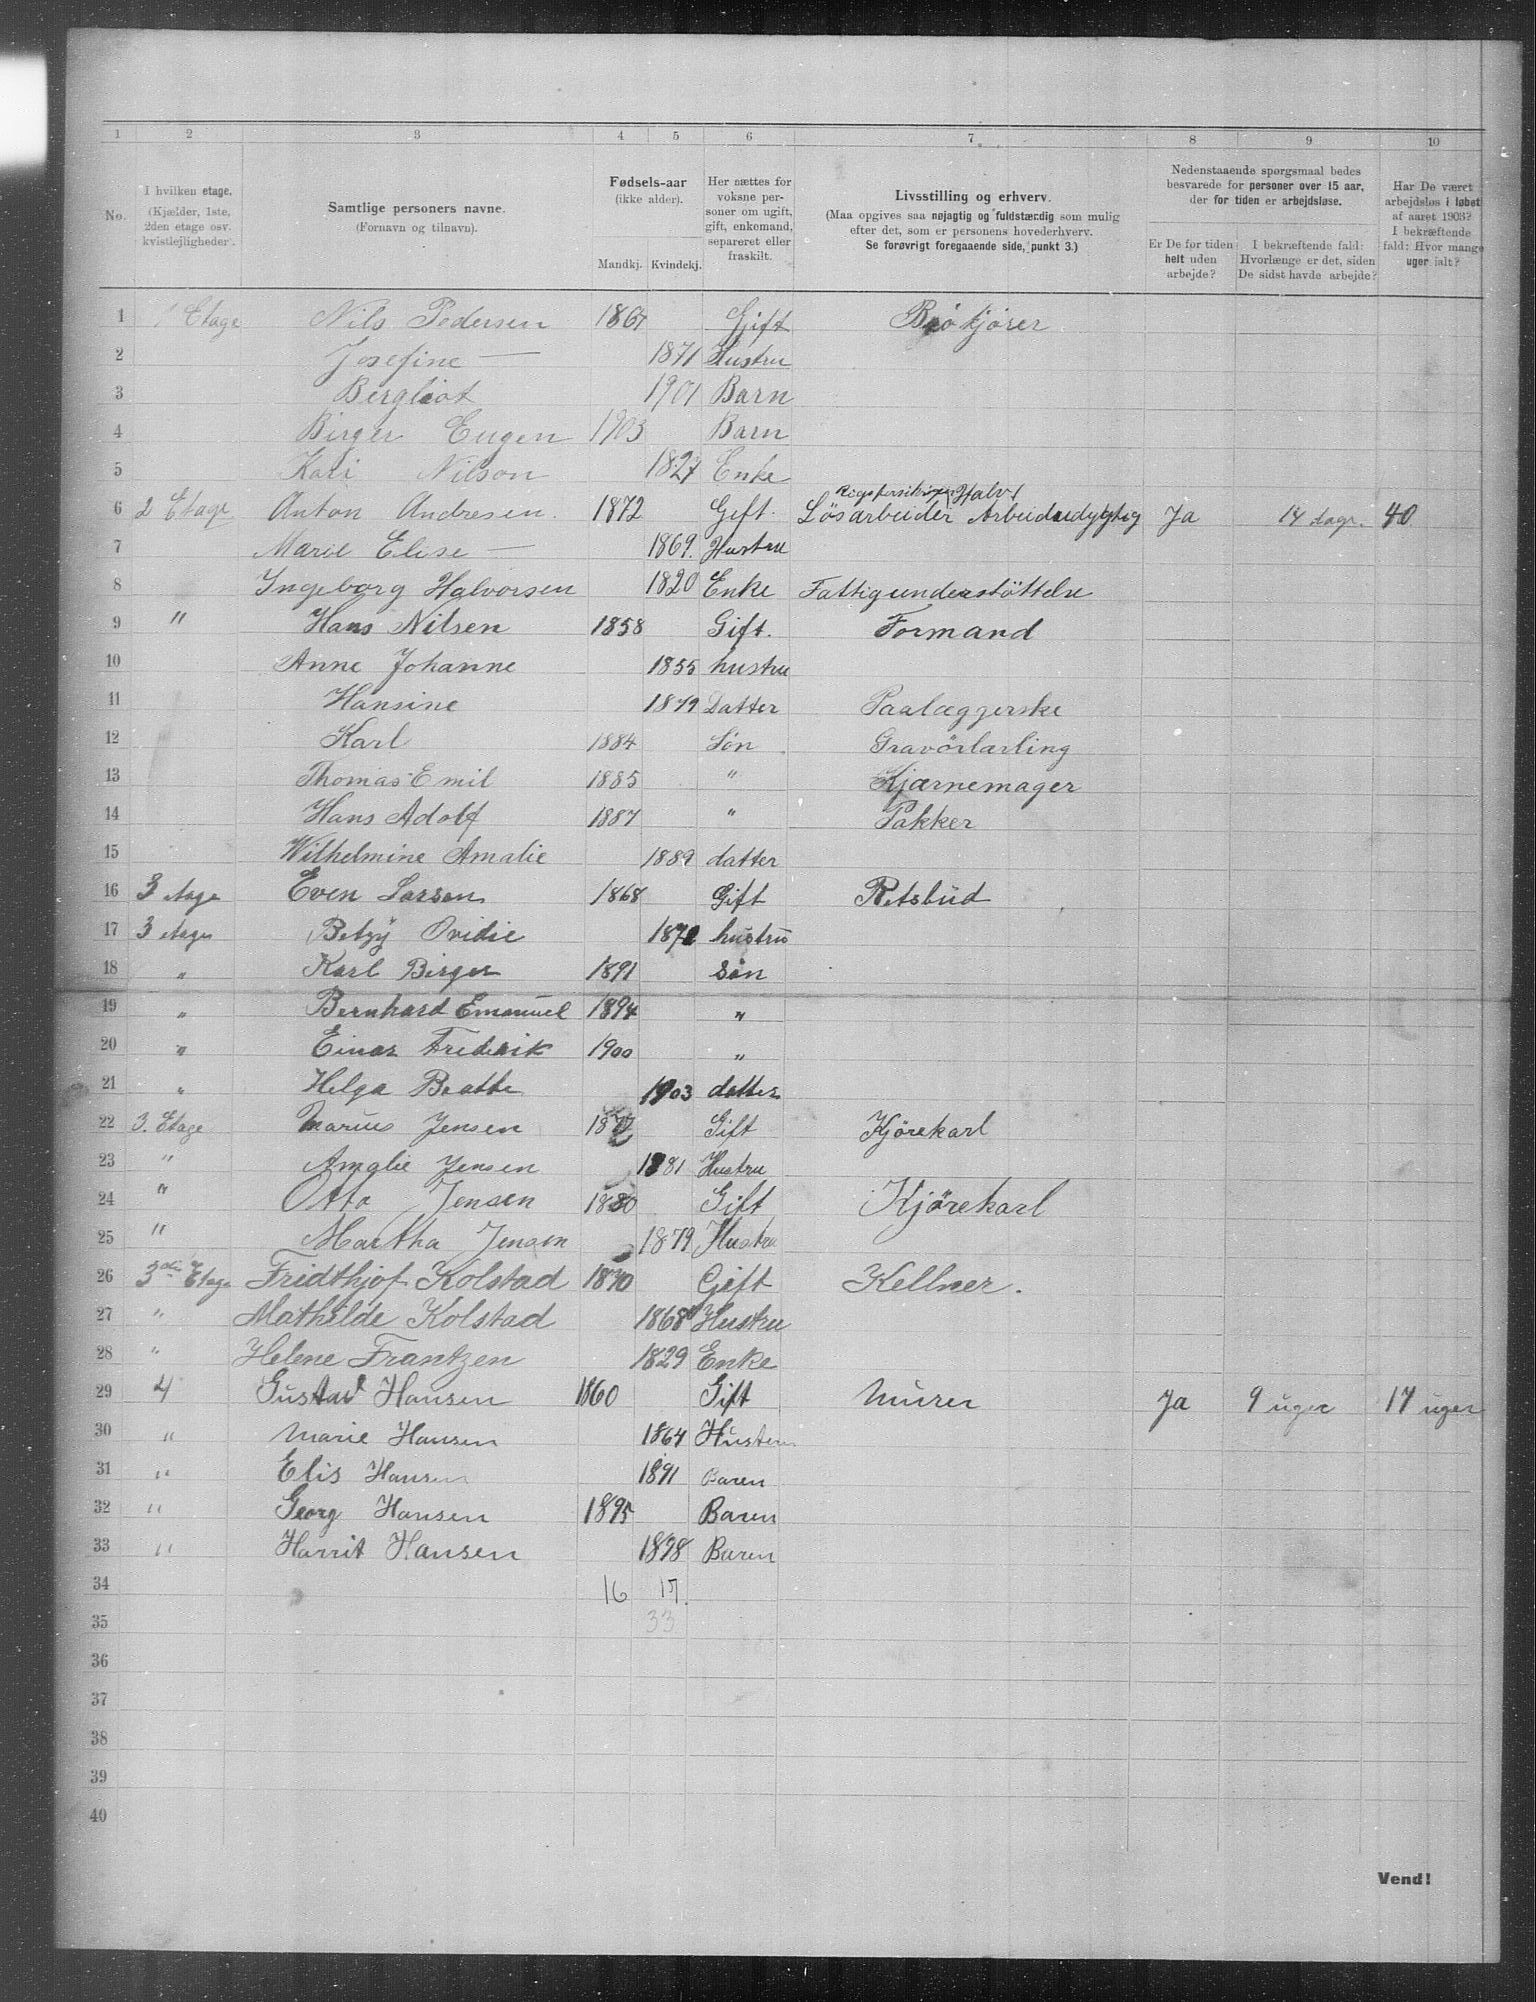 1 2 3 4 5 6 7 8 9 10
No.
I hvilken etage.
(Kjælder, 1ste,
2den etage osv.
kvistlejligheder.
Samtlige personers navne.
(Fornavn og tilnavn).
Fødsels-aar
(ikke alder).
Mandkj. Kvindekj.
Her nættes for
voksne per-
soner om ugift,
gift, enkemand,
separeret eller
fraskilt.
Livsstilling og erhverv.
(Maa opgives saa nøjagtig og fuldstændig som mulig
efter det, som er personens hovederhverv.
Se forøvrigt foregaaende side, punkt 3.)
Nedenstaaende spørgsmaal bedes
besvarede for personer over 15 aar,
der for tiden er arbejdsløse.
Er De for tiden
helt uden
arbejde?
I bekræftende fald:
Hvorlænge er det, siden
De sidst havde arbejde?
Har De været
arbejdsløs i løbet
af aaret 1903?
I bekræftende
fald: Hvor mange
uger ialt?
1 1 Etage Nils Pedersen 1867 Gift
2 Josefine — 1871 Hustru
3 Bergliot 1901 Barn
4 Birger Eugen 1903 Barn
5 Kari Nilson 1827 Enke
Halvt
6 2 Etage Anton Andresen. 1872 Gift. Løsarbeider Arbeidsudygtig Ja 14 dage. 40
7 Marie Elise — 1869. Hustru
8 Ingeborg Halvorsen 1820 Enke Fattigunderstöttelse
9 " Hans Nilsen 1858 Gift. Formand
10 Anne Johanne 1855 hustru
11 Hansine 1879 Datter Paalæggerske
12 Karl 1884 Søn Gravörlærling
13 Thomas Emil 1885 " Kjærnemager
14 Hans Adolf 1887 " Pakker
15 Wilhelmine Amalie 1889 datter
16 3 etage Even Larsen 1868 Gift Retsbud
17 3 etage Betzy Ovidie 1872 hustru
18 " Karl Birger 1891 Søn
19 " Bernhard Emanuel 1894 "
20 " Einar Frederik 1900 "
21 " Helga Beatte 1903 datter
22 3. Etage Marius Jensen Gift Kjørekarl
23 " Amalie Jensen 1881 Hustru
24 " Otto Jensen 1880 Gift Kjørekarl
25 " Martha Jensen 1879 Hustru
26 3die Etage Fridthjof Kolstad 1870 Gift Kellner.
27 " Mathilde Kolstad 1868 Hustru
28 " Helene Frantzen 1829 Enke
29 4 Gustav Hansen 1860 Gift Murer Ja 9 uger 17 uger
30 " Marie Hansen 1864 Hustru
31 " Elis Hansen 1891 Baren
32 " Georg Hansen 1895 Baren
33 " Harrit Hansen 1898 Baren
34 16 17.
35 33
36
37
38
39
40
Vend!